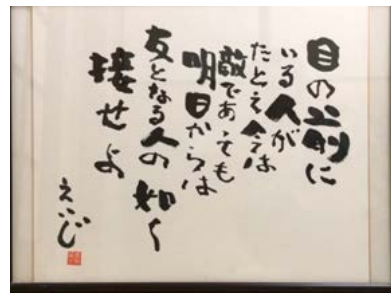 目の前に
いる人が
たとえ今は
敵であっても
明日からは
友となる人の如く
接せよ
えいじ